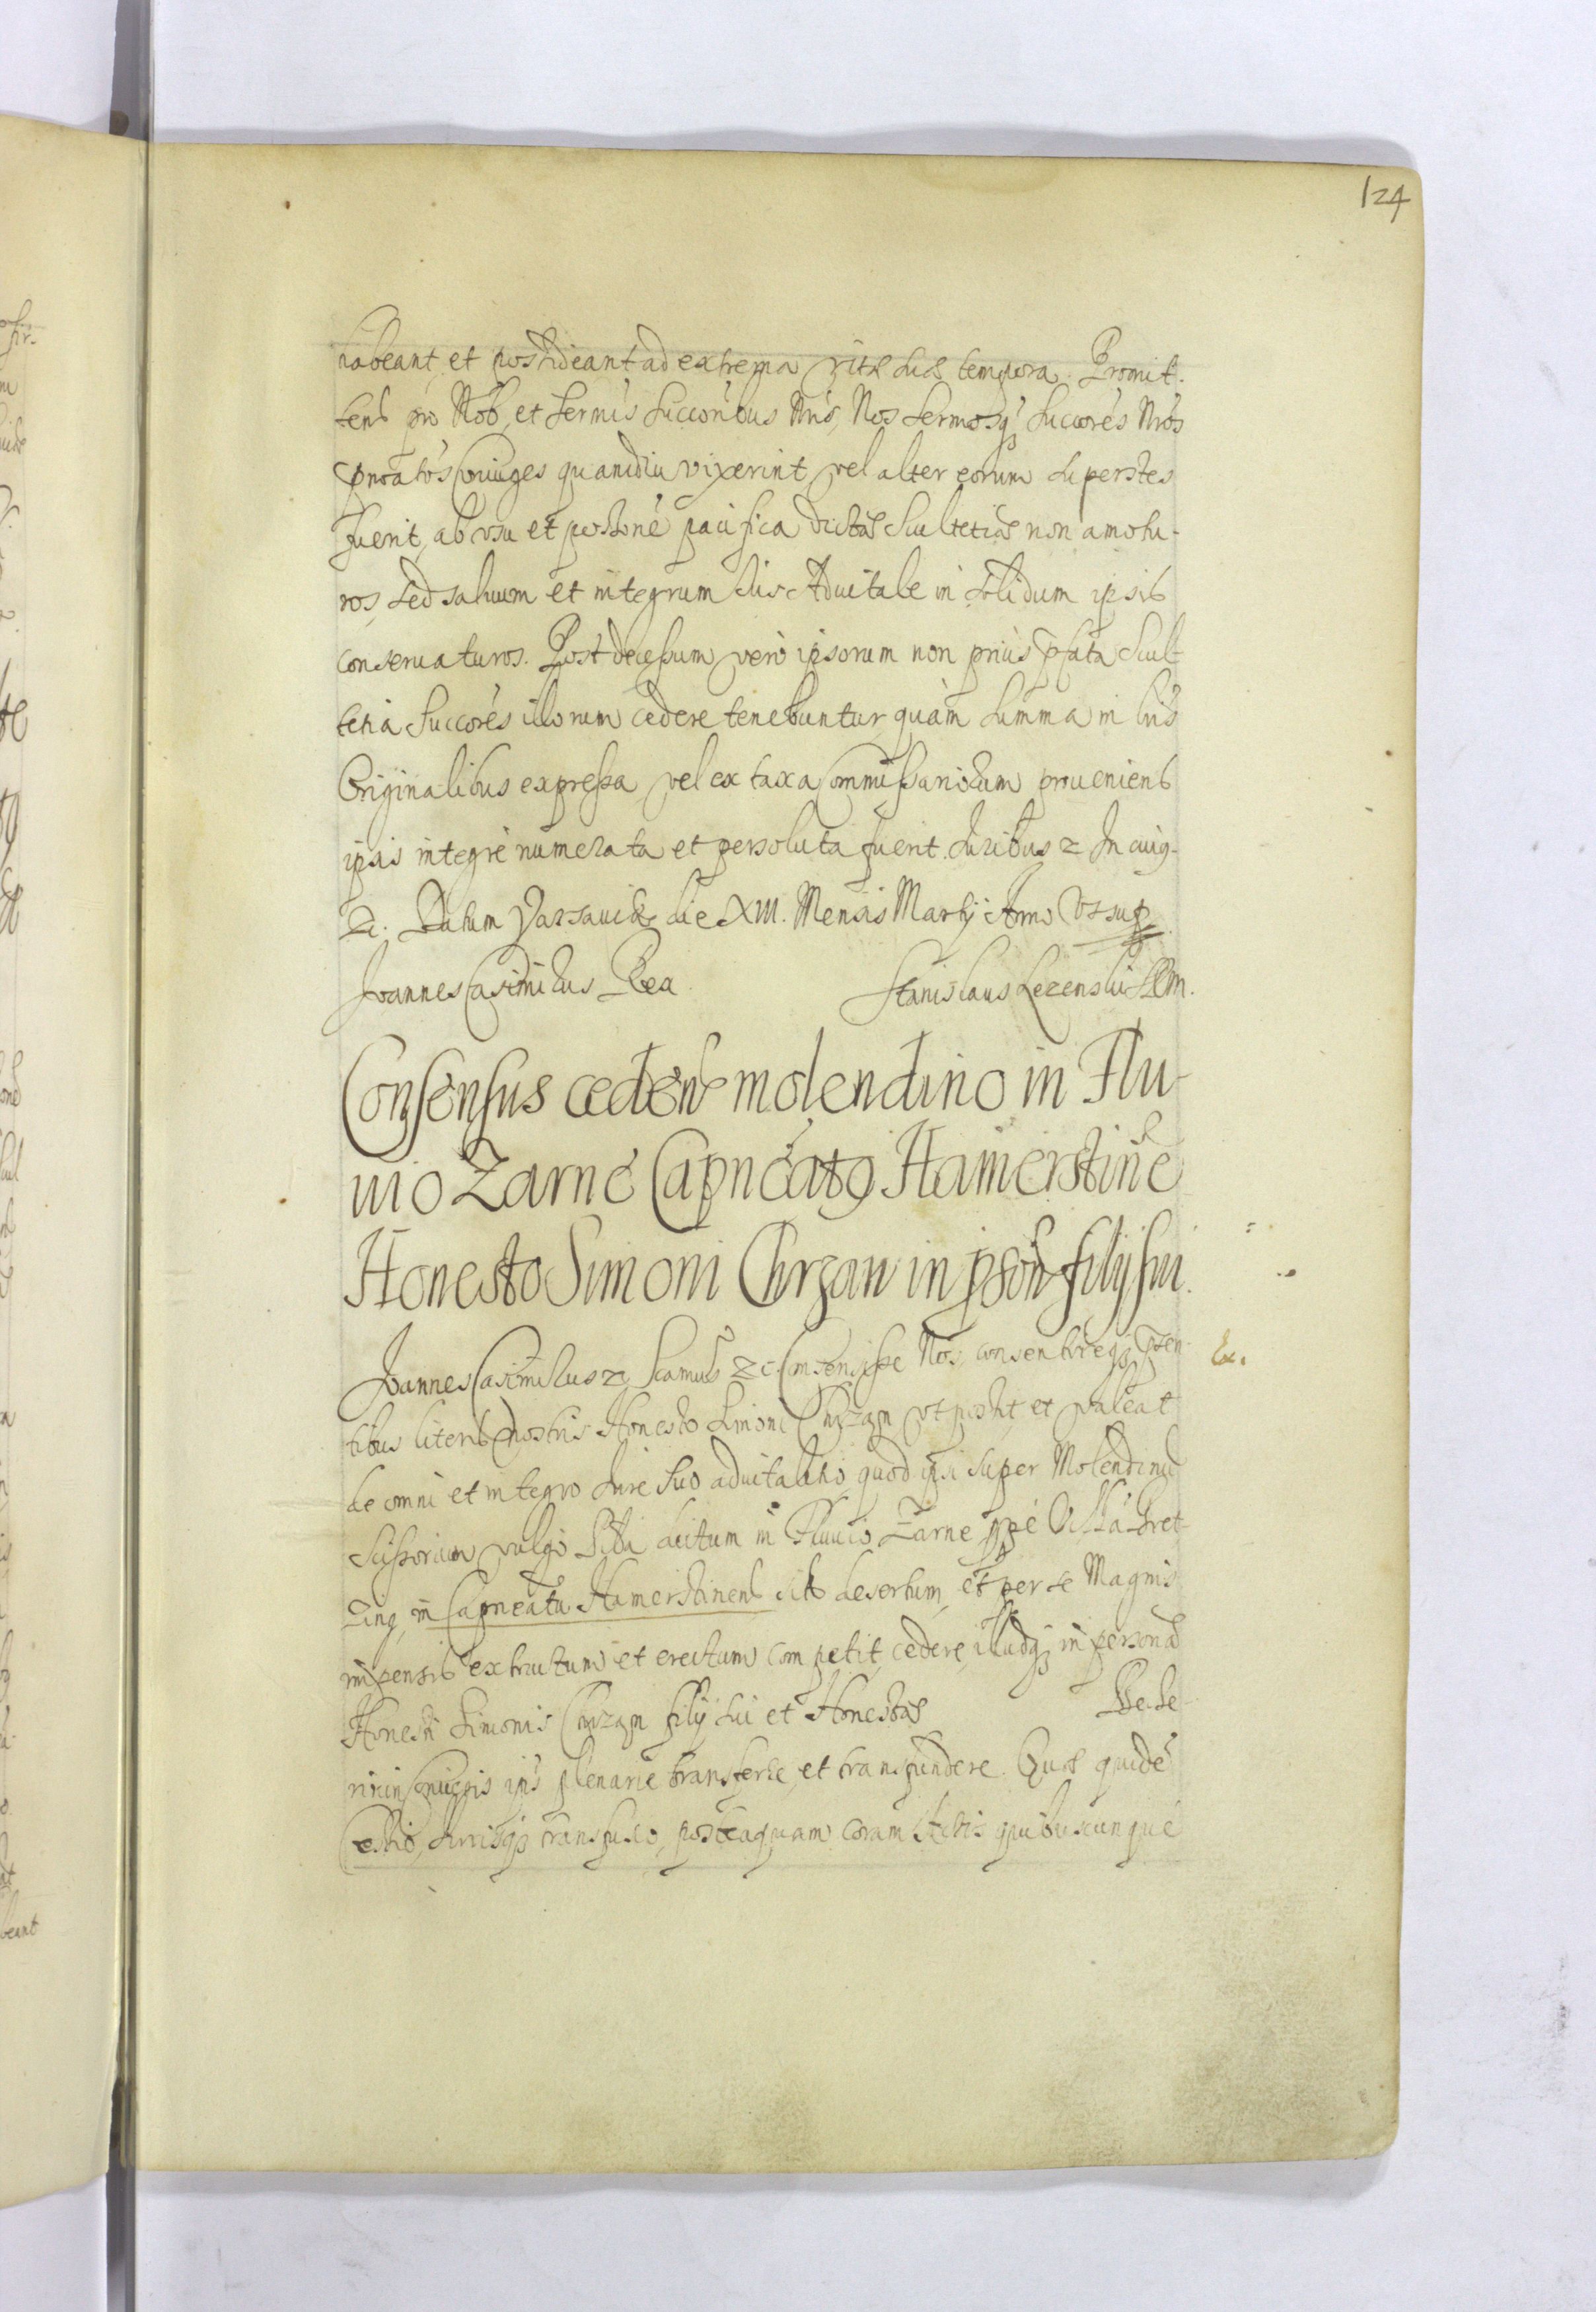 124
habeant, et possideant ad extrema vitæ suæ tempora. Promit-
tens pro Nob, et Sermis Succoribus Nris, Nos Sermosq Succores Nros
pnoatos Coniuges quamdiu vixerint, vel alter eorum superstes
fuerit, ab vsu et possone pacifica dictæ Scultetiæ non amotu-
ros, sed saluum et integrum Ius Aduitale in solidum ipsis
conseruaturos. Post decessum vero ipsorum non prius pfata Scul-
tetia Succores illorum cedere tenebuntur, quàm summa in lris
Originalibus expressa, vel ex taxa Commissariorum proueniens
ipsis integrè numerata et persoluta fuerit. Iuribus z In cuiq-
z. Datum Varsauiæ die XIII. Mensis Martij Anno Vt sup
Joannes Casimirus Rex
Stanislaus Lezenski SRM.
Consensus cedend molendino in Flu-
uio Zarne Capneato Hamerstine
Honesto Simoni Chrzan in pson filij sui.
Joannes Casimirus z, Scamus z c. Consensisse Nos, consentireq; psen-
tibus literis nostris Honesto Simoni Chrzan vt possit, et valeat
de omni et integro Iure suo aduitalitio, quod ipsi super Molendinu
Scissorium vulgo dictum in Fluuio Zarne
Ex.
in Capneatu Hamerstinens desertum, et per se Magnis
impensis extructum et erectum competit, cedere, illudq; in personas
Honesti Simonis Chrzan filij sui et Honestæ De-de-
Coniugis ips plenarie transferre, et transfundere. Quæ quidē
Cessio, Iurisq; transfusio, posteaquam coram Actis quibuscunque